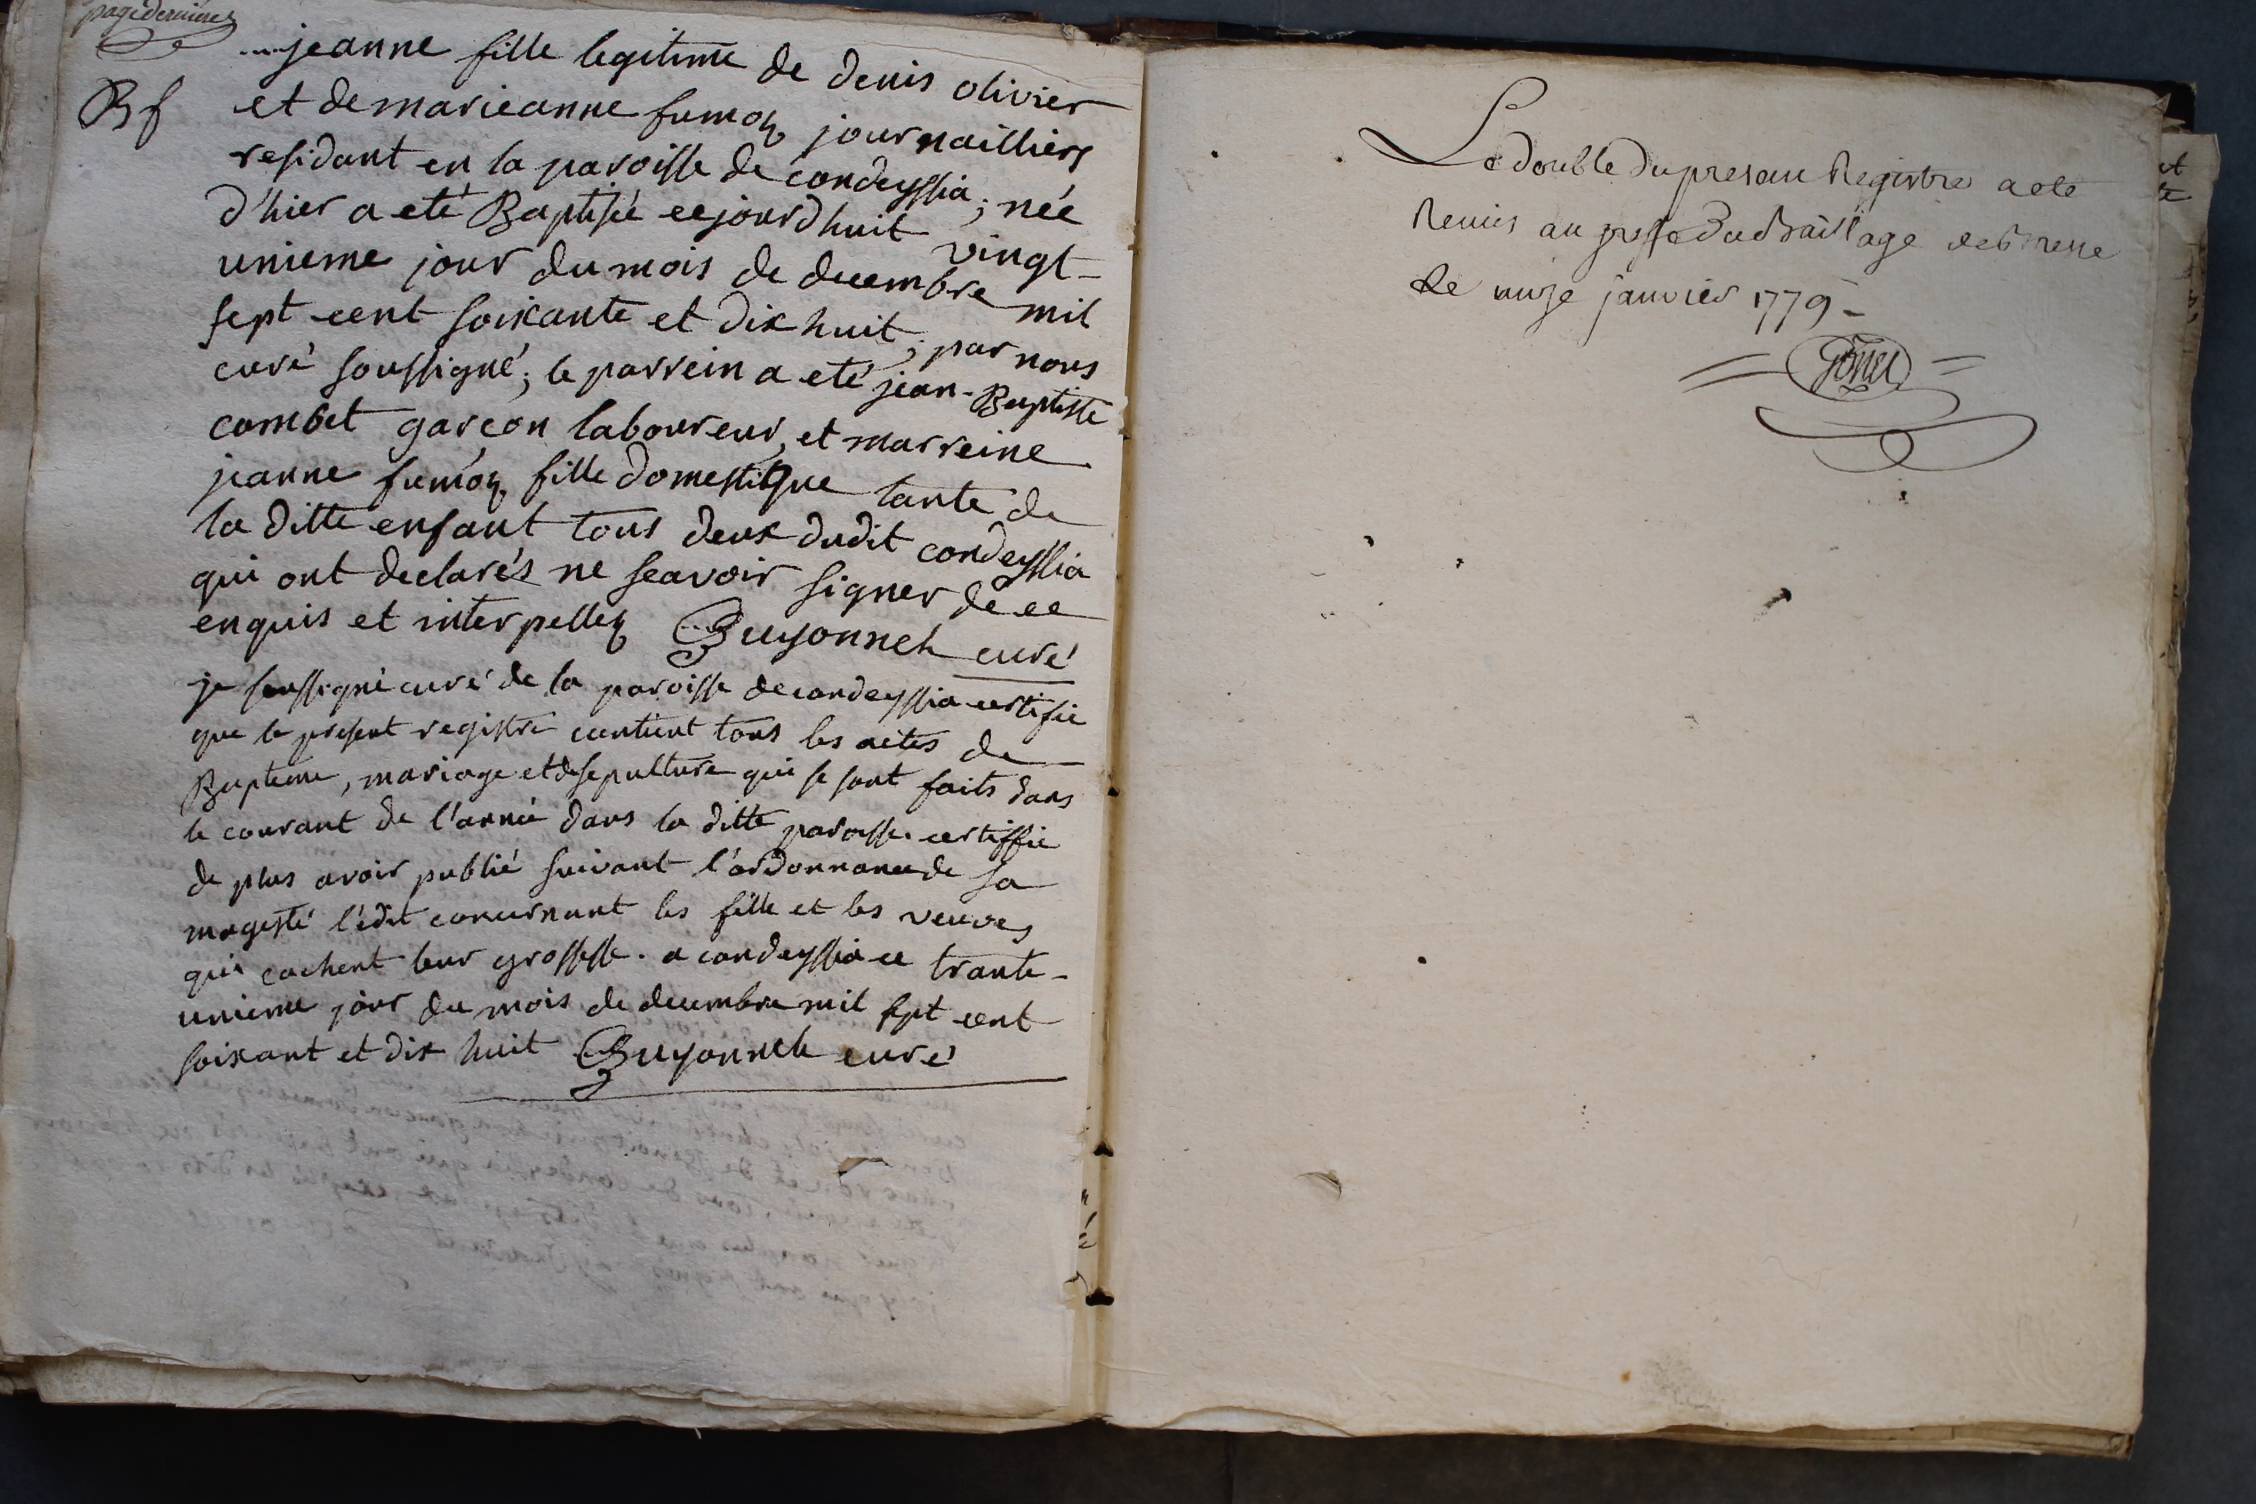 page derniere
Bf
jeanne fille legitime de denis olivier
et de marieanne fumoz journailliers
residant en la paroisse de condeyssia ; née
d'hier a eté Baptisée cejourdhuit vingt-
unieme jour du mois de decembre mil
sept cent soixante et dix huit ; par nous
curé soussigné ; le parrein a eté jean-Baptiste
combet garcon laboureur, et marreine
jeanne fumoz fille domestique tante de
la ditte enfant tous deux dudit condeyssia
qui ont declarés ne scavoir signer de ce
enquis et interpellez Guyonneh curé
je soussigné curé de la paroisse de condeyssia certifie
que le present registre contient tous les actes de
Bapteme, mariage et de sepulture qui se sont faits dans
le courant de l'année dans la ditte paroisse. certiffie
de plus avoir publié suivant l'ordonnance de sa
magesté l'édit concernant les fille et les veuves
qui cachent leur grossesse. a condeyssia ce trante-
unieme jour du mois de decembre mil sept cent
soixant et dix huit Guyonneh curé
Le double du presant Registre a eté
Remis au greffe du Bailliage de Bresse
le onze janvier 1779 -